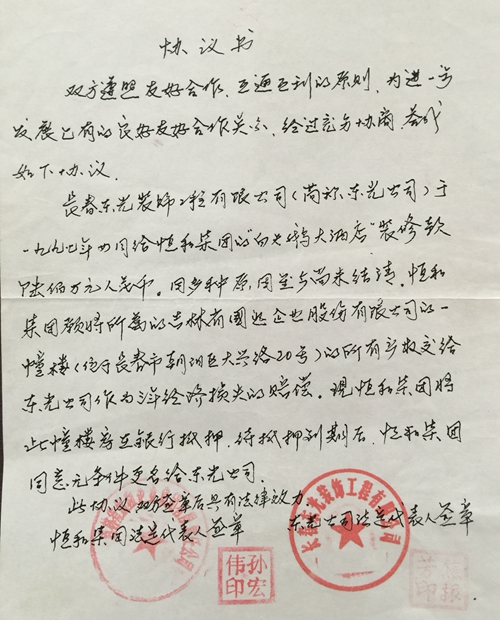 协议书
双方遵照友好合作、互通互利的原则，为进一步
发展已有的良好友好合作关系，经过充分协商，达成
如下协议。
长春东光装饰工程有限公司（简称东光公司）于
一九九七年四月给恒和集团的"白天鹅大酒店"装修款
陆佰万元人民币。因多种原因至今尚未结清。恒和
集团愿将所属的吉林省国业企业股份有限公司的一
幢楼（位于长春市朝阳区大兴路20号）的所有产权交给
东光公司作为经济损失的赔偿。现恒和集团将
此幢楼房在银行抵押，待抵押到期后，恒和集团
同意无条件更名给东光公司。
此协议双方签章后具有法律效力
恒和集团法定代表人签章 东光公司法定代表人签章
孙宏
伟印
装饰工程有限公司